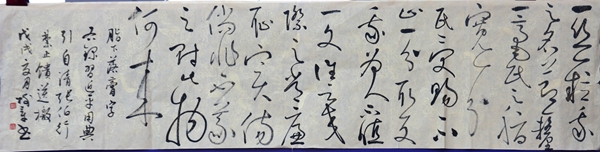 一丝一粒我
之名节一厘
一毫民之脂
宽一分
民受赐不
止一分取一文
我为人不值
一文谁云交
际之常廉
耻实伤
倘非不义
之财此物
何来
脂下落膏字
吾录习近平用典
引自清张伯行
禁馈送檄
戊戌夏月书